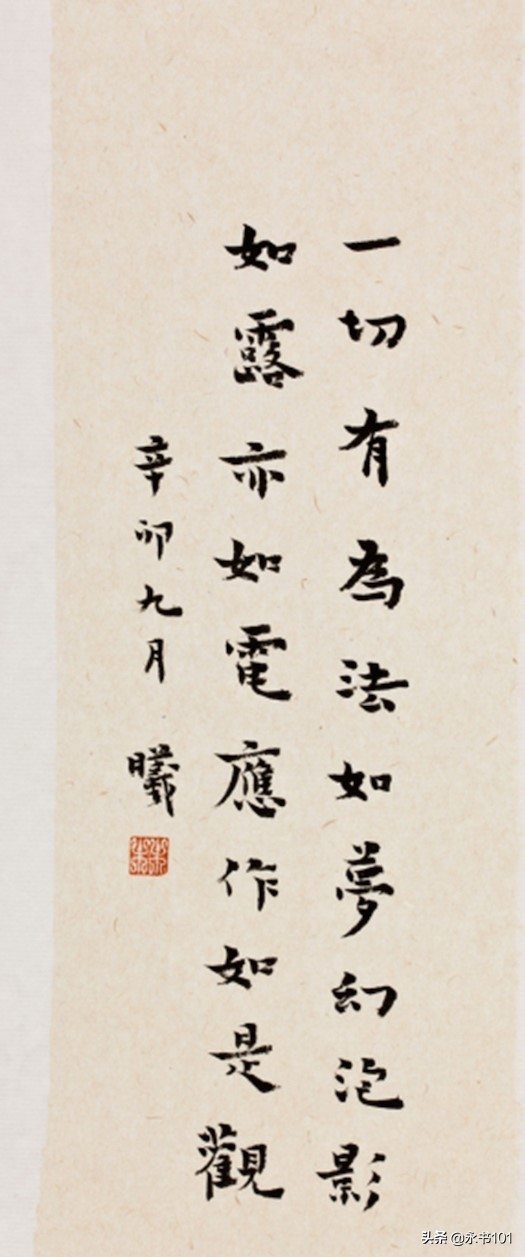 一切有為法如夢幻泡影
如露亦如電應作如是觀
辛卯九月 曦
头条 @永书101